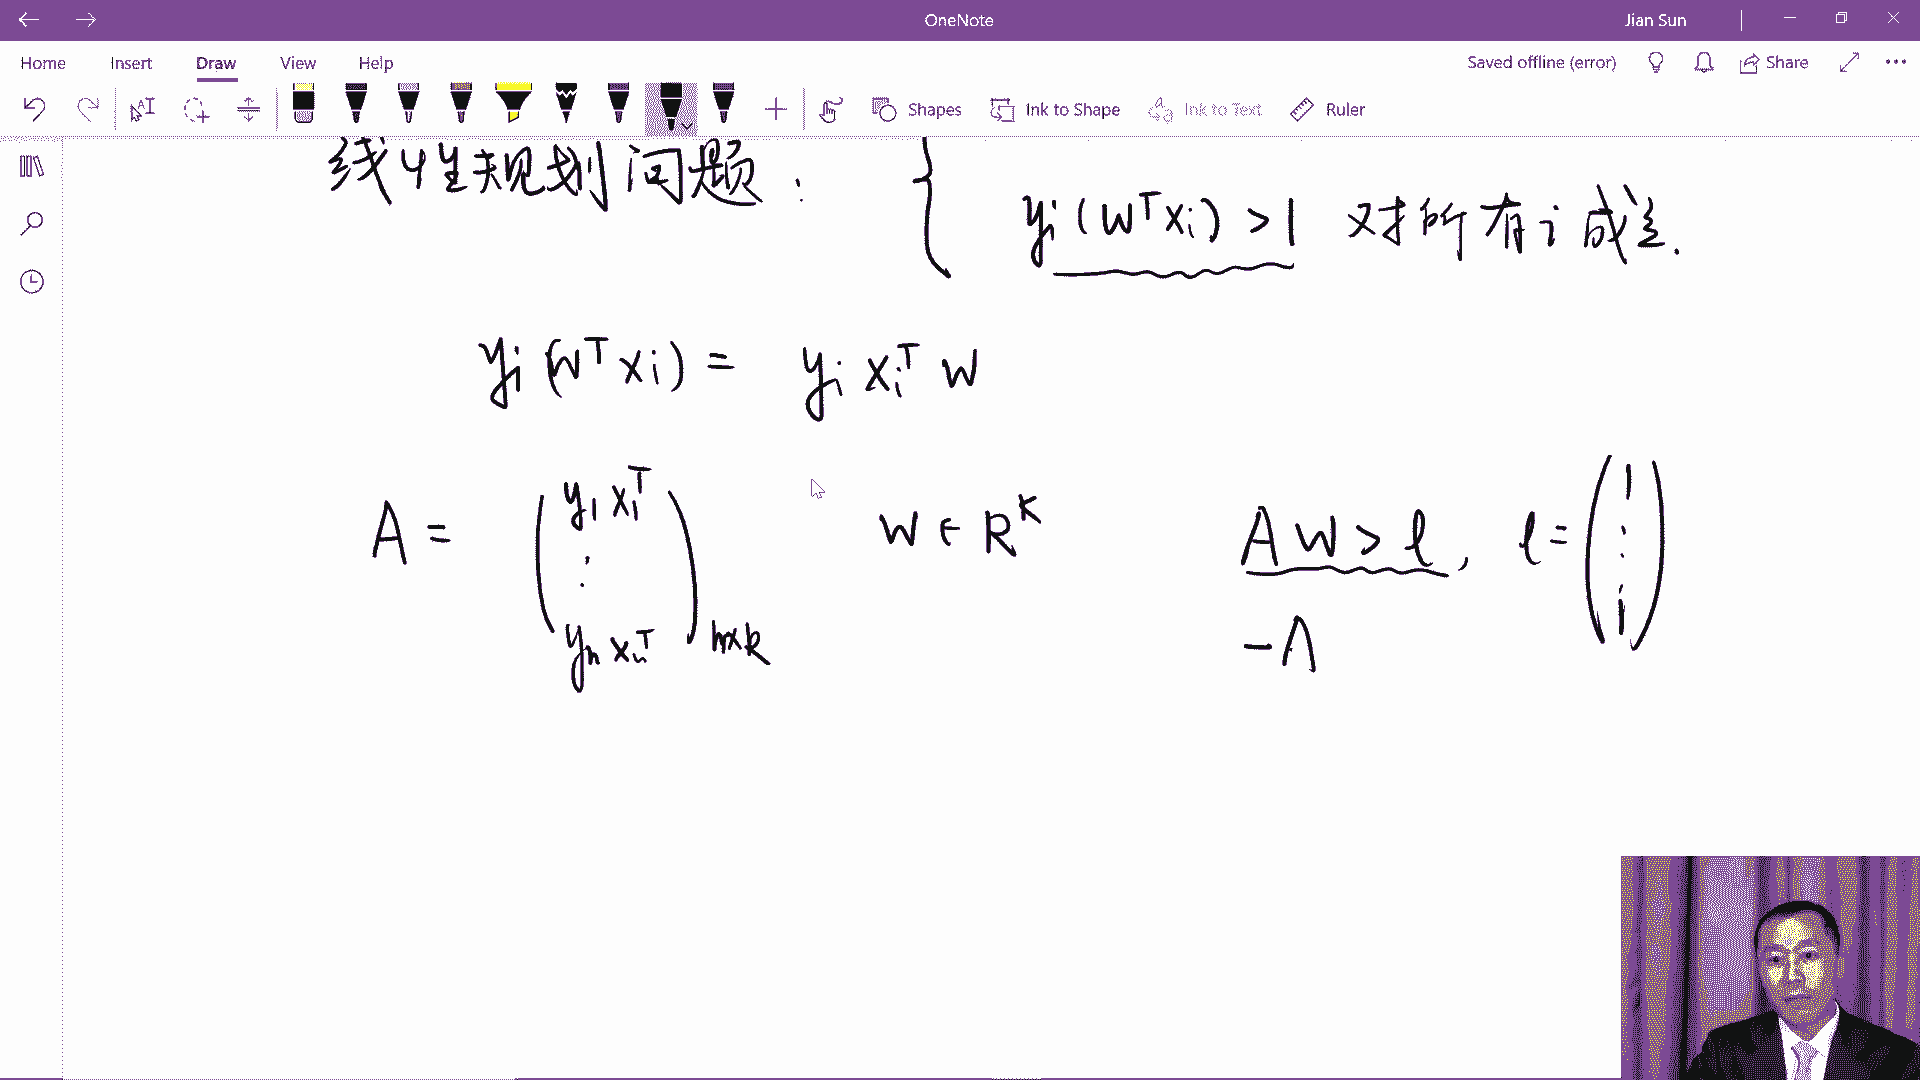 OneNote
Jian Sun
Home Insert Draw View Help
Saved offline (error) Share
Shapes Ink to Shape Ink to Text Ruler
线性规划问题:
{ yᵢ(Wᵀxᵢ) > 1 对所有 i 成立.
yᵢ(Wᵀxᵢ) = yᵢ xᵢᵀ W
A = ( y₁ x₁ᵀ ⋮ yₙ xₙᵀ ) n×k W ∈ Rᴷ A W > l, l = ( 1 ⋮ 1 )
-A